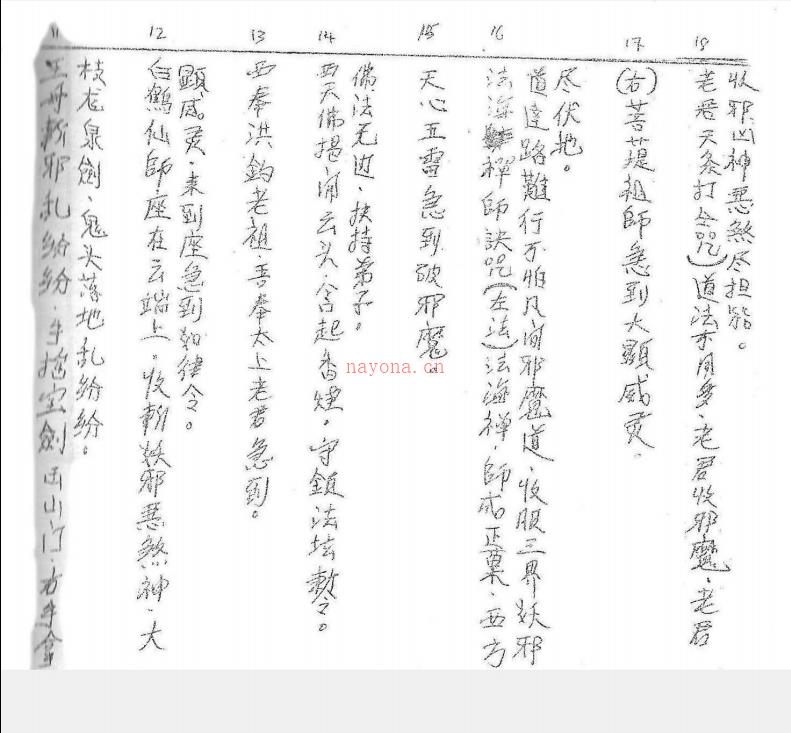 11
王母斬邪乱纷纷、手搖宝劍出山门、右手拿
枝龙泉劍、鬼头落地乱纷纷。
12
白鶴仙師座在云端上、收斬妖邪恶煞神、大
顕威灵、来到座急到如律令。
13
西奉洪鈞老祖、吾奉太上老君急到。
14
西天佛揭、闹云头、含起香煙。守鎮法坛敕令。
佛法无边、扶持弟子。
15
天心五雷急到破邪魔.
16
法海禅師訣咒(左法)法海禅、師成正菓、西方
道達路難行不怕凡间邪魔道、收服三界妖邪
尽伏地。
17
(右)菩提祖師急到大顕威灵.
18
老君天条打全咒)道法亦用多、老君收邪魔、老君
收邪凶神恶煞尽担能。
nayona.cn